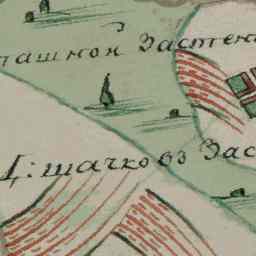 пашной Застен
Д: шачковъ Зас